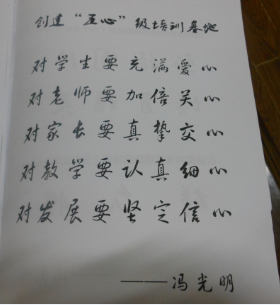 创建“五心”级培训基地
对学生要充满爱心
对老师要加倍关心
对家长要真挚交心
对教学要认真细心
对发展要坚定信心
——冯光明